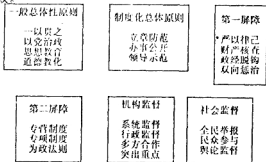 一般总体性原则
一以贯之
以党治政
思想教育
道德教化
制度化总体原则
立章防范
办事公开
领导示范
第一屏障
严以律己
财产核查
政经脱钩
双向惩治
第二屏障
专营制度
专项制度
为政法则
机构监督
系统监督
行政监督
多方合作
突出重点
社会监督
全民举报
民众参与
舆论监督